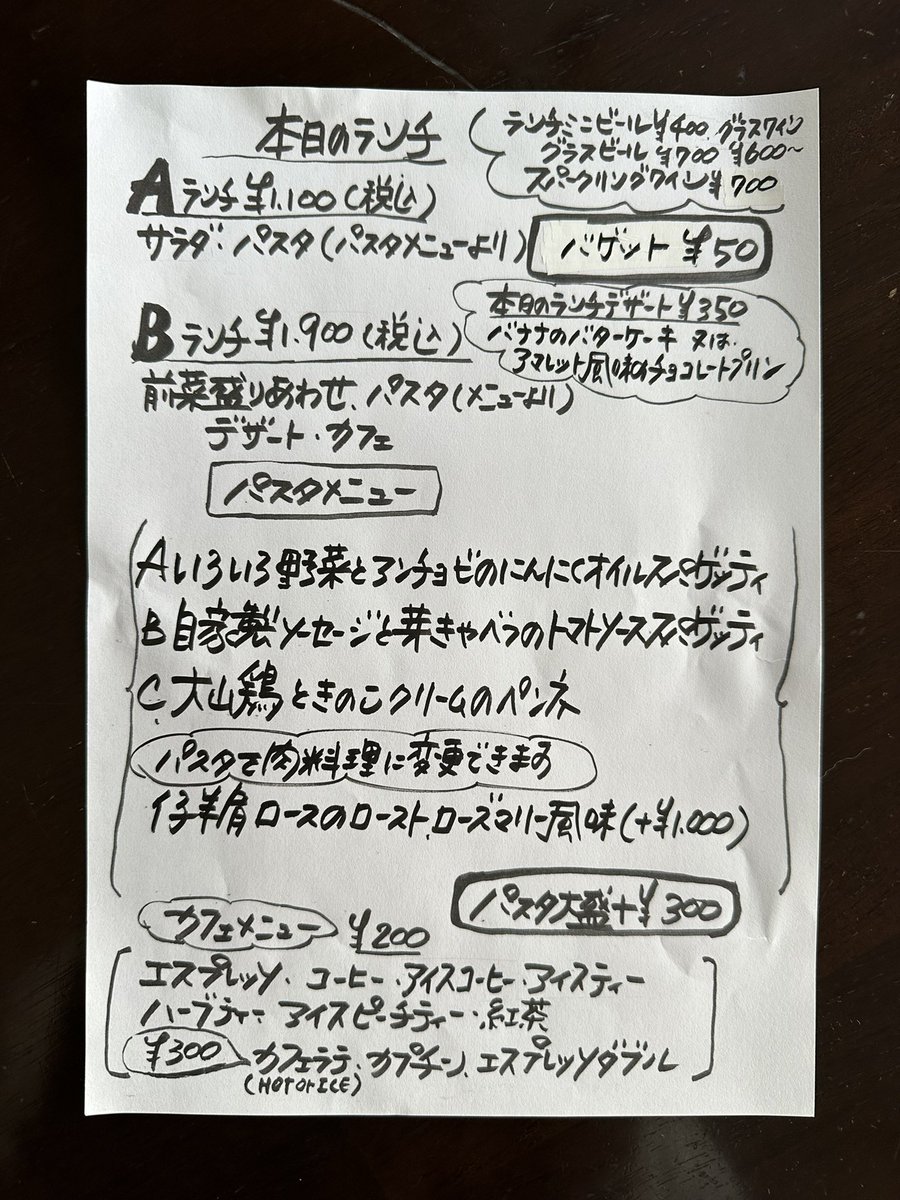 本日のランチ
ランチミニビール¥400 グラスワイン
グラスビール ¥700 ¥600〜
スパークリングワイン¥700
Aランチ¥1.100(税込)
サラダ・パスタ(パスタメニューより)
バゲット ¥50
Bランチ¥1.900(税込)
前菜盛りあわせ、パスタ(メニューより)
デザート・カフェ
本日のランチデザート¥350
バナナのバターケーキ 又は
アマレット風味チョコレートプリン
パスタメニュー
Aいろいろ野菜とアンチョビのにんにくオイルスパゲッティ
B自家製ソーセージと芽きゃべつのトマトソーススパゲッティ
C.大山鶏ときのこクリームのペンネ
パスタで肉料理に変更できます
仔羊肩ロースのロースト、ローズマリー風味(+¥1.000)
パスタ大盛+¥300
カフェメニュー ¥200
エスプレッソ・コーヒー・アイスコーヒー・アイスティー
ハーブティー・アイスピーチティー・紅茶
¥300 カフェラテ・カプチーノ、エスプレッソダブル
(HOT or ICE)